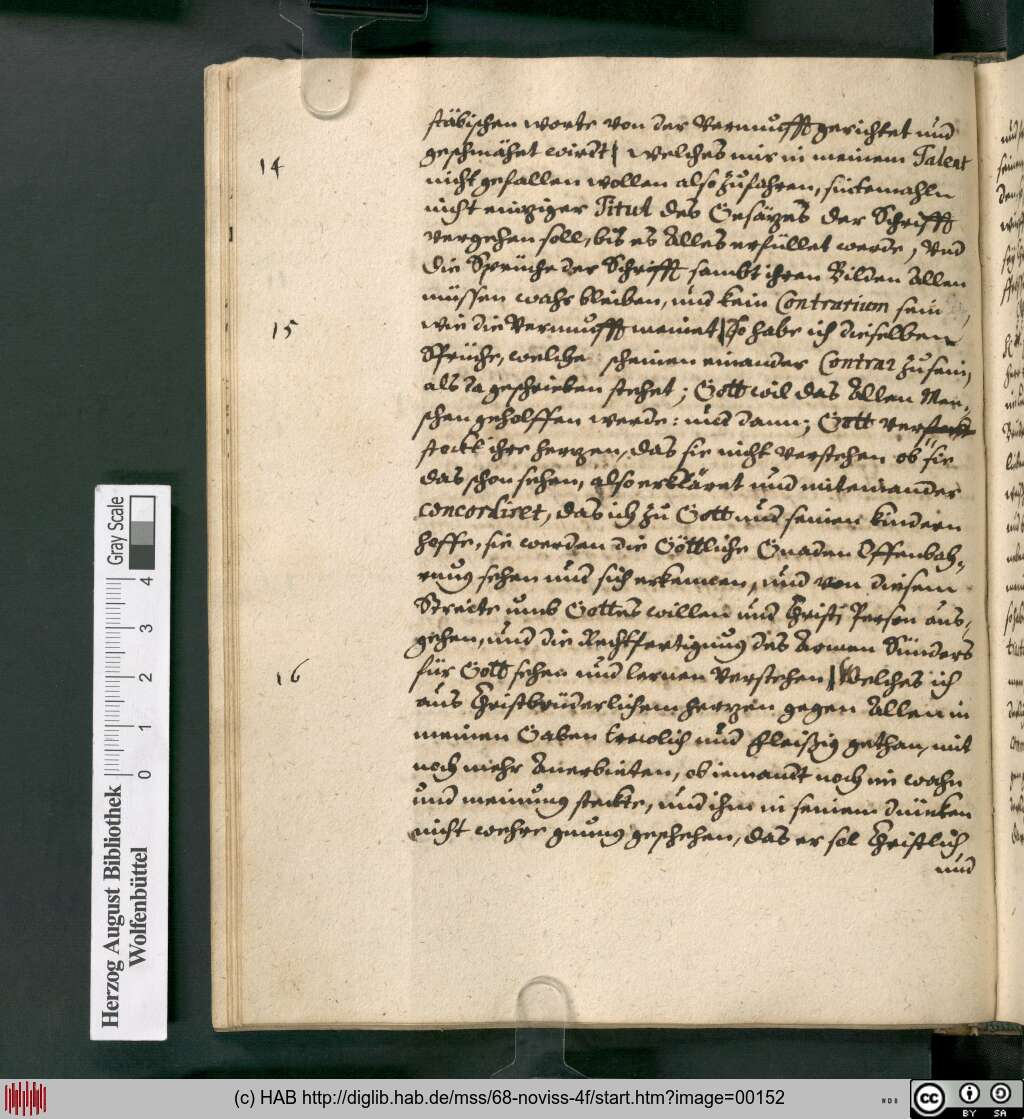 stäbischen worte von der Vernunfft gerichtet und
14 geschmähet wirdt, welches mir in meinem Talent
nicht gefallen wollen also zufahren, sintemahln
nicht einziger Titul des Gesäzes der Schrifft
vergehen soll, bis es Alles erfüllet werde, Und
die Sprüche der Schrifft sambt ihren Bilden Allen
müssen wahr bleiben, und kein Contrarium sein,
15 wie die Vernunfft meinet, So habe ich dieselben
Sprüche, welche scheinen einander Contrar zu sein,
als da geschrieben stehet; Gott wil das Allen Men-
schen geholffen werde: und dann; Gott ver
stockt ihre herzen, das sie nicht verstehen ob sie
das schon sehen, also erkläret und miteinander
concordiret, das ich zu Gott und seinen kindern
hoffe, sie werden die Göttliche Gnaden Offenbah-
rung sehen und sich erkennen, und von diesem
Streite umb Gottes willen und Christi Person aus-
gehen, und die Rechtfertigung des Armen Sünders
16 für Gott sehen und lernen verstehen, Welches ich
aus Christbrüderlichem herzen gegen Allen in
meinen Gaben trewlich und fleißig gethan, mit
noch mehr Anerbieten, ob iemandt noch im wahn
und meinung steckte, und ihm in seinem düncken
nicht wehre gnung geschehen, das er sol Christlich
und
Herzog August Bibliothek
Wolfenbüttel
Gray Scale
0 1 2 3 4
(c) HAB http://diglib.hab.de/mss/68-noviss-4f/start.htm?image=00152
cc BY SA